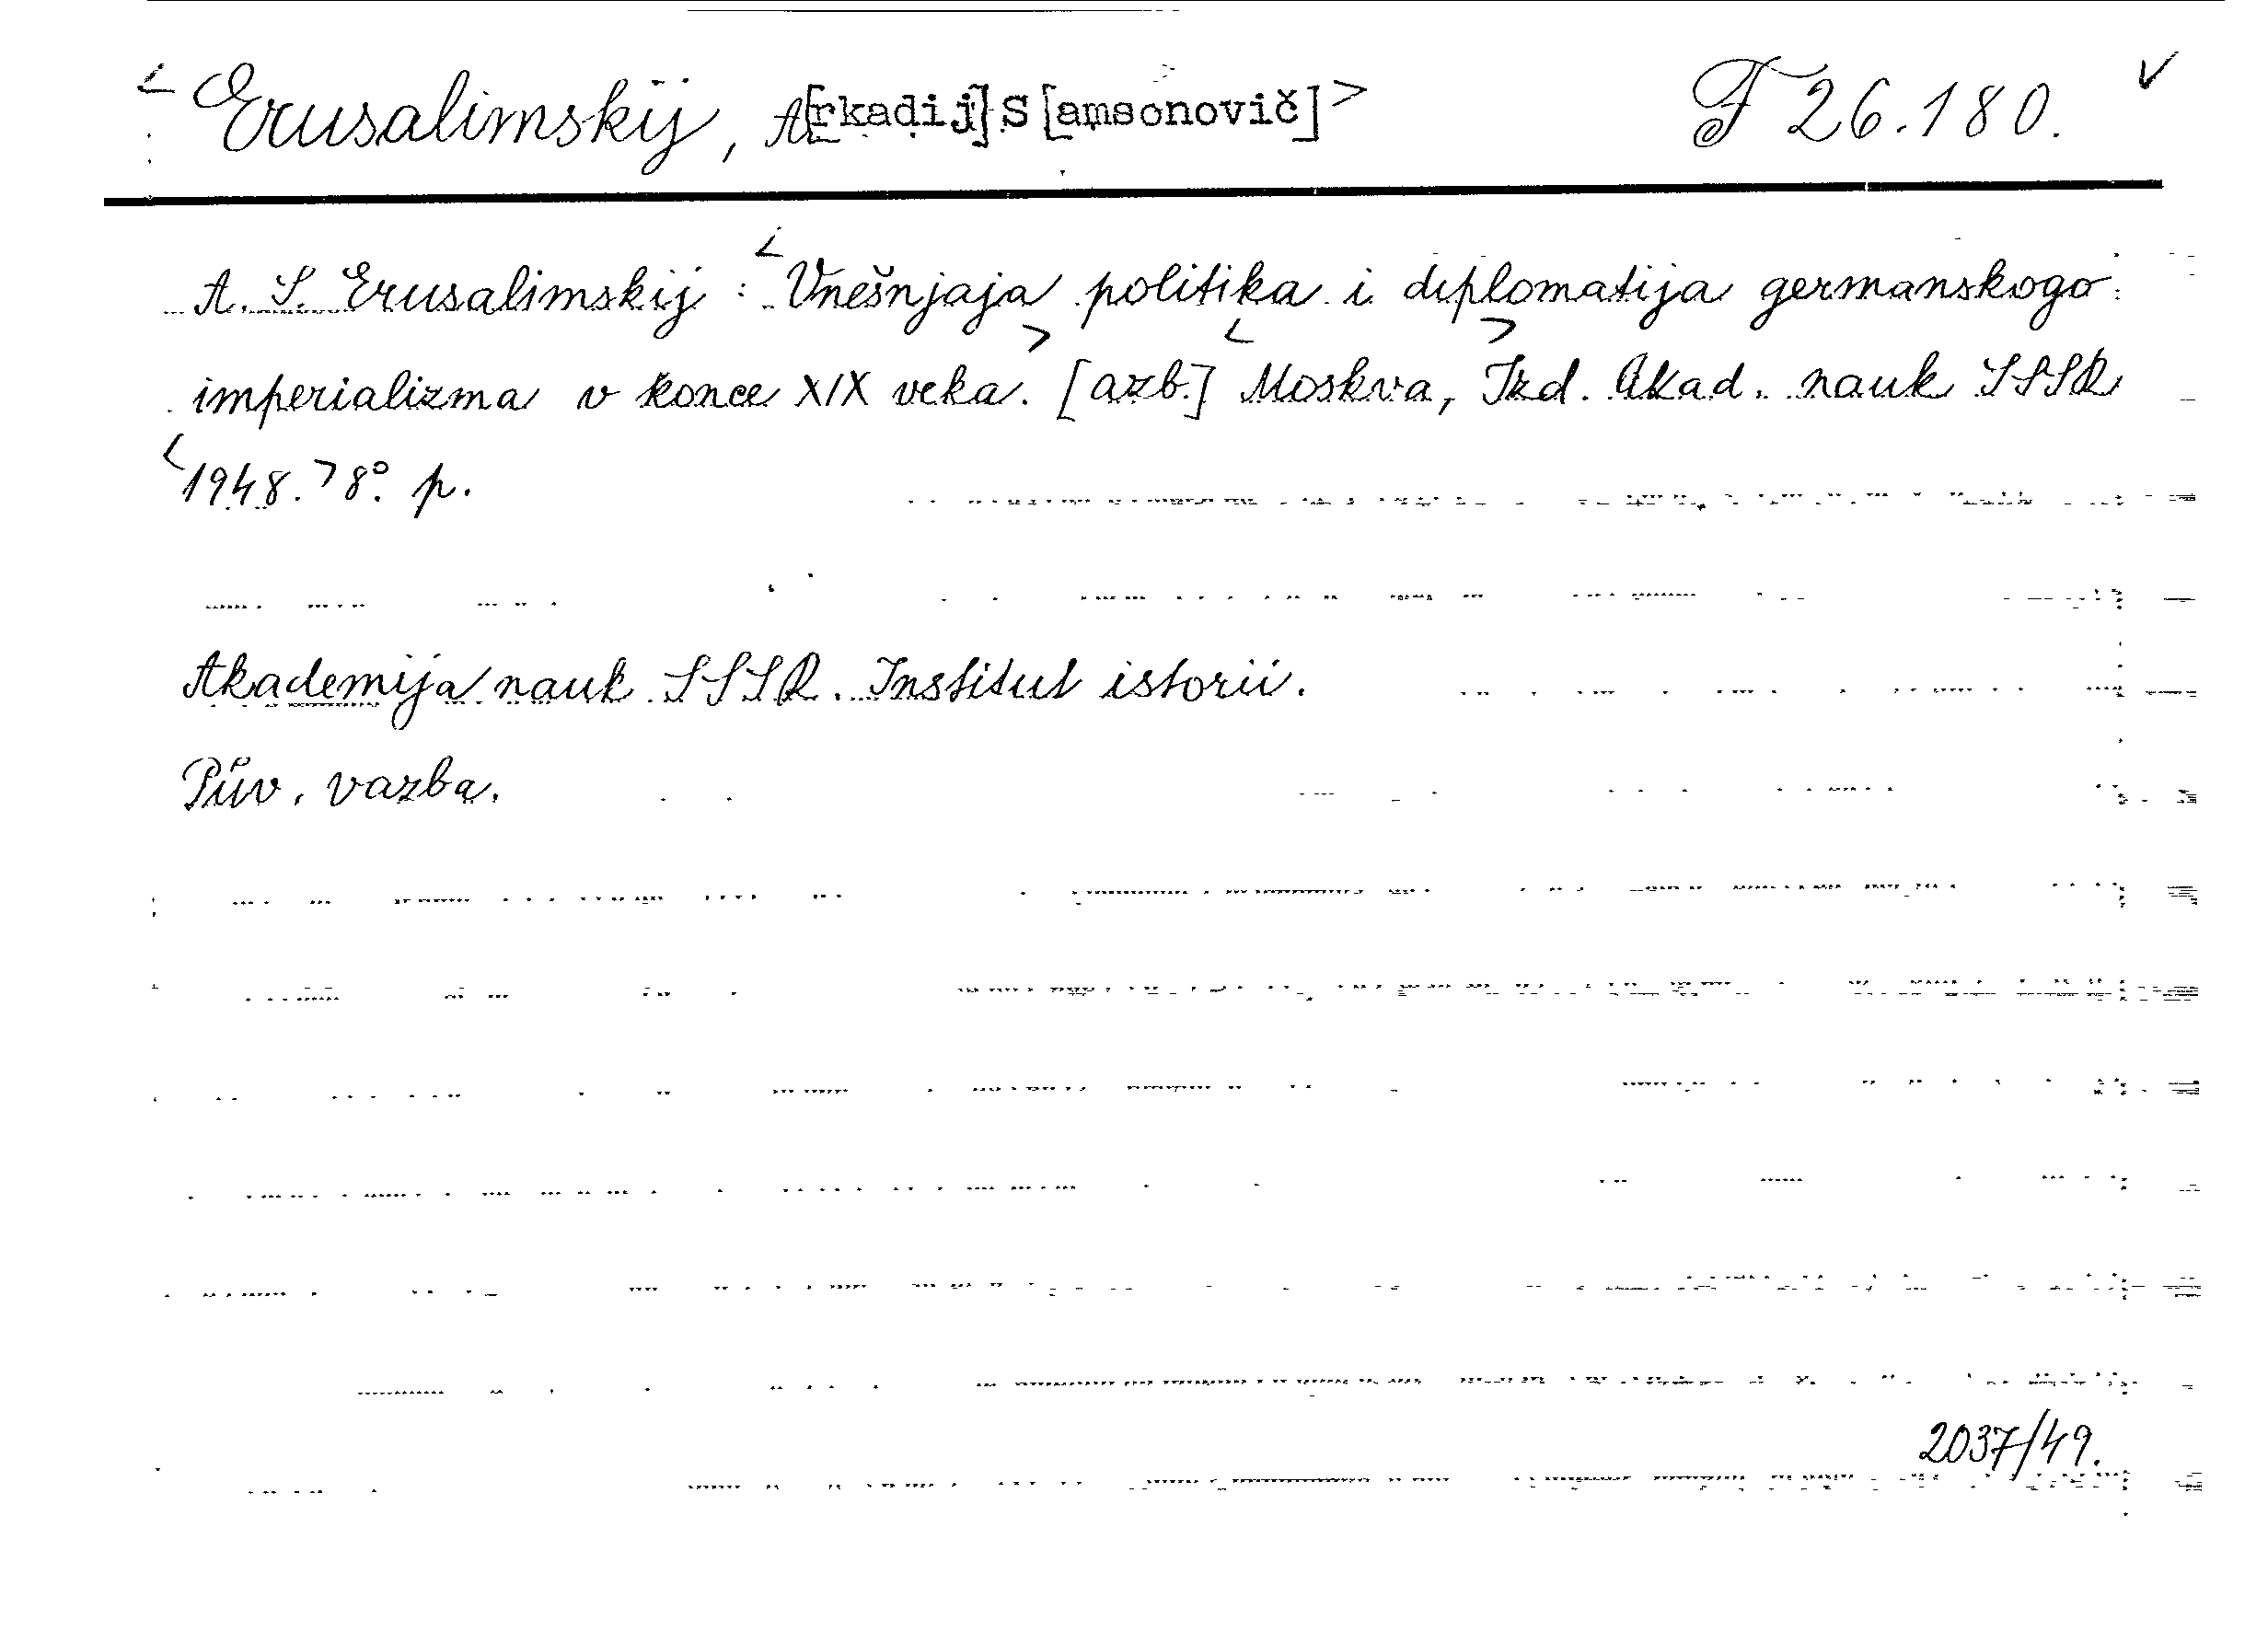 < Erusalimskij, A[rkadij] S[amsonovič] > F 26.180. ✓
A. S. Erusalimskij : < Vnešnjaja politika i diplomatija germanskogo
imperializma v konce XIX veka. > [azb.] < Moskva, > Izd. Akad. nauk SSSR
< 1948. > 8°. p.
Akademija nauk SSSR. Institut istorii.
Pův. vazba.
2037/49.